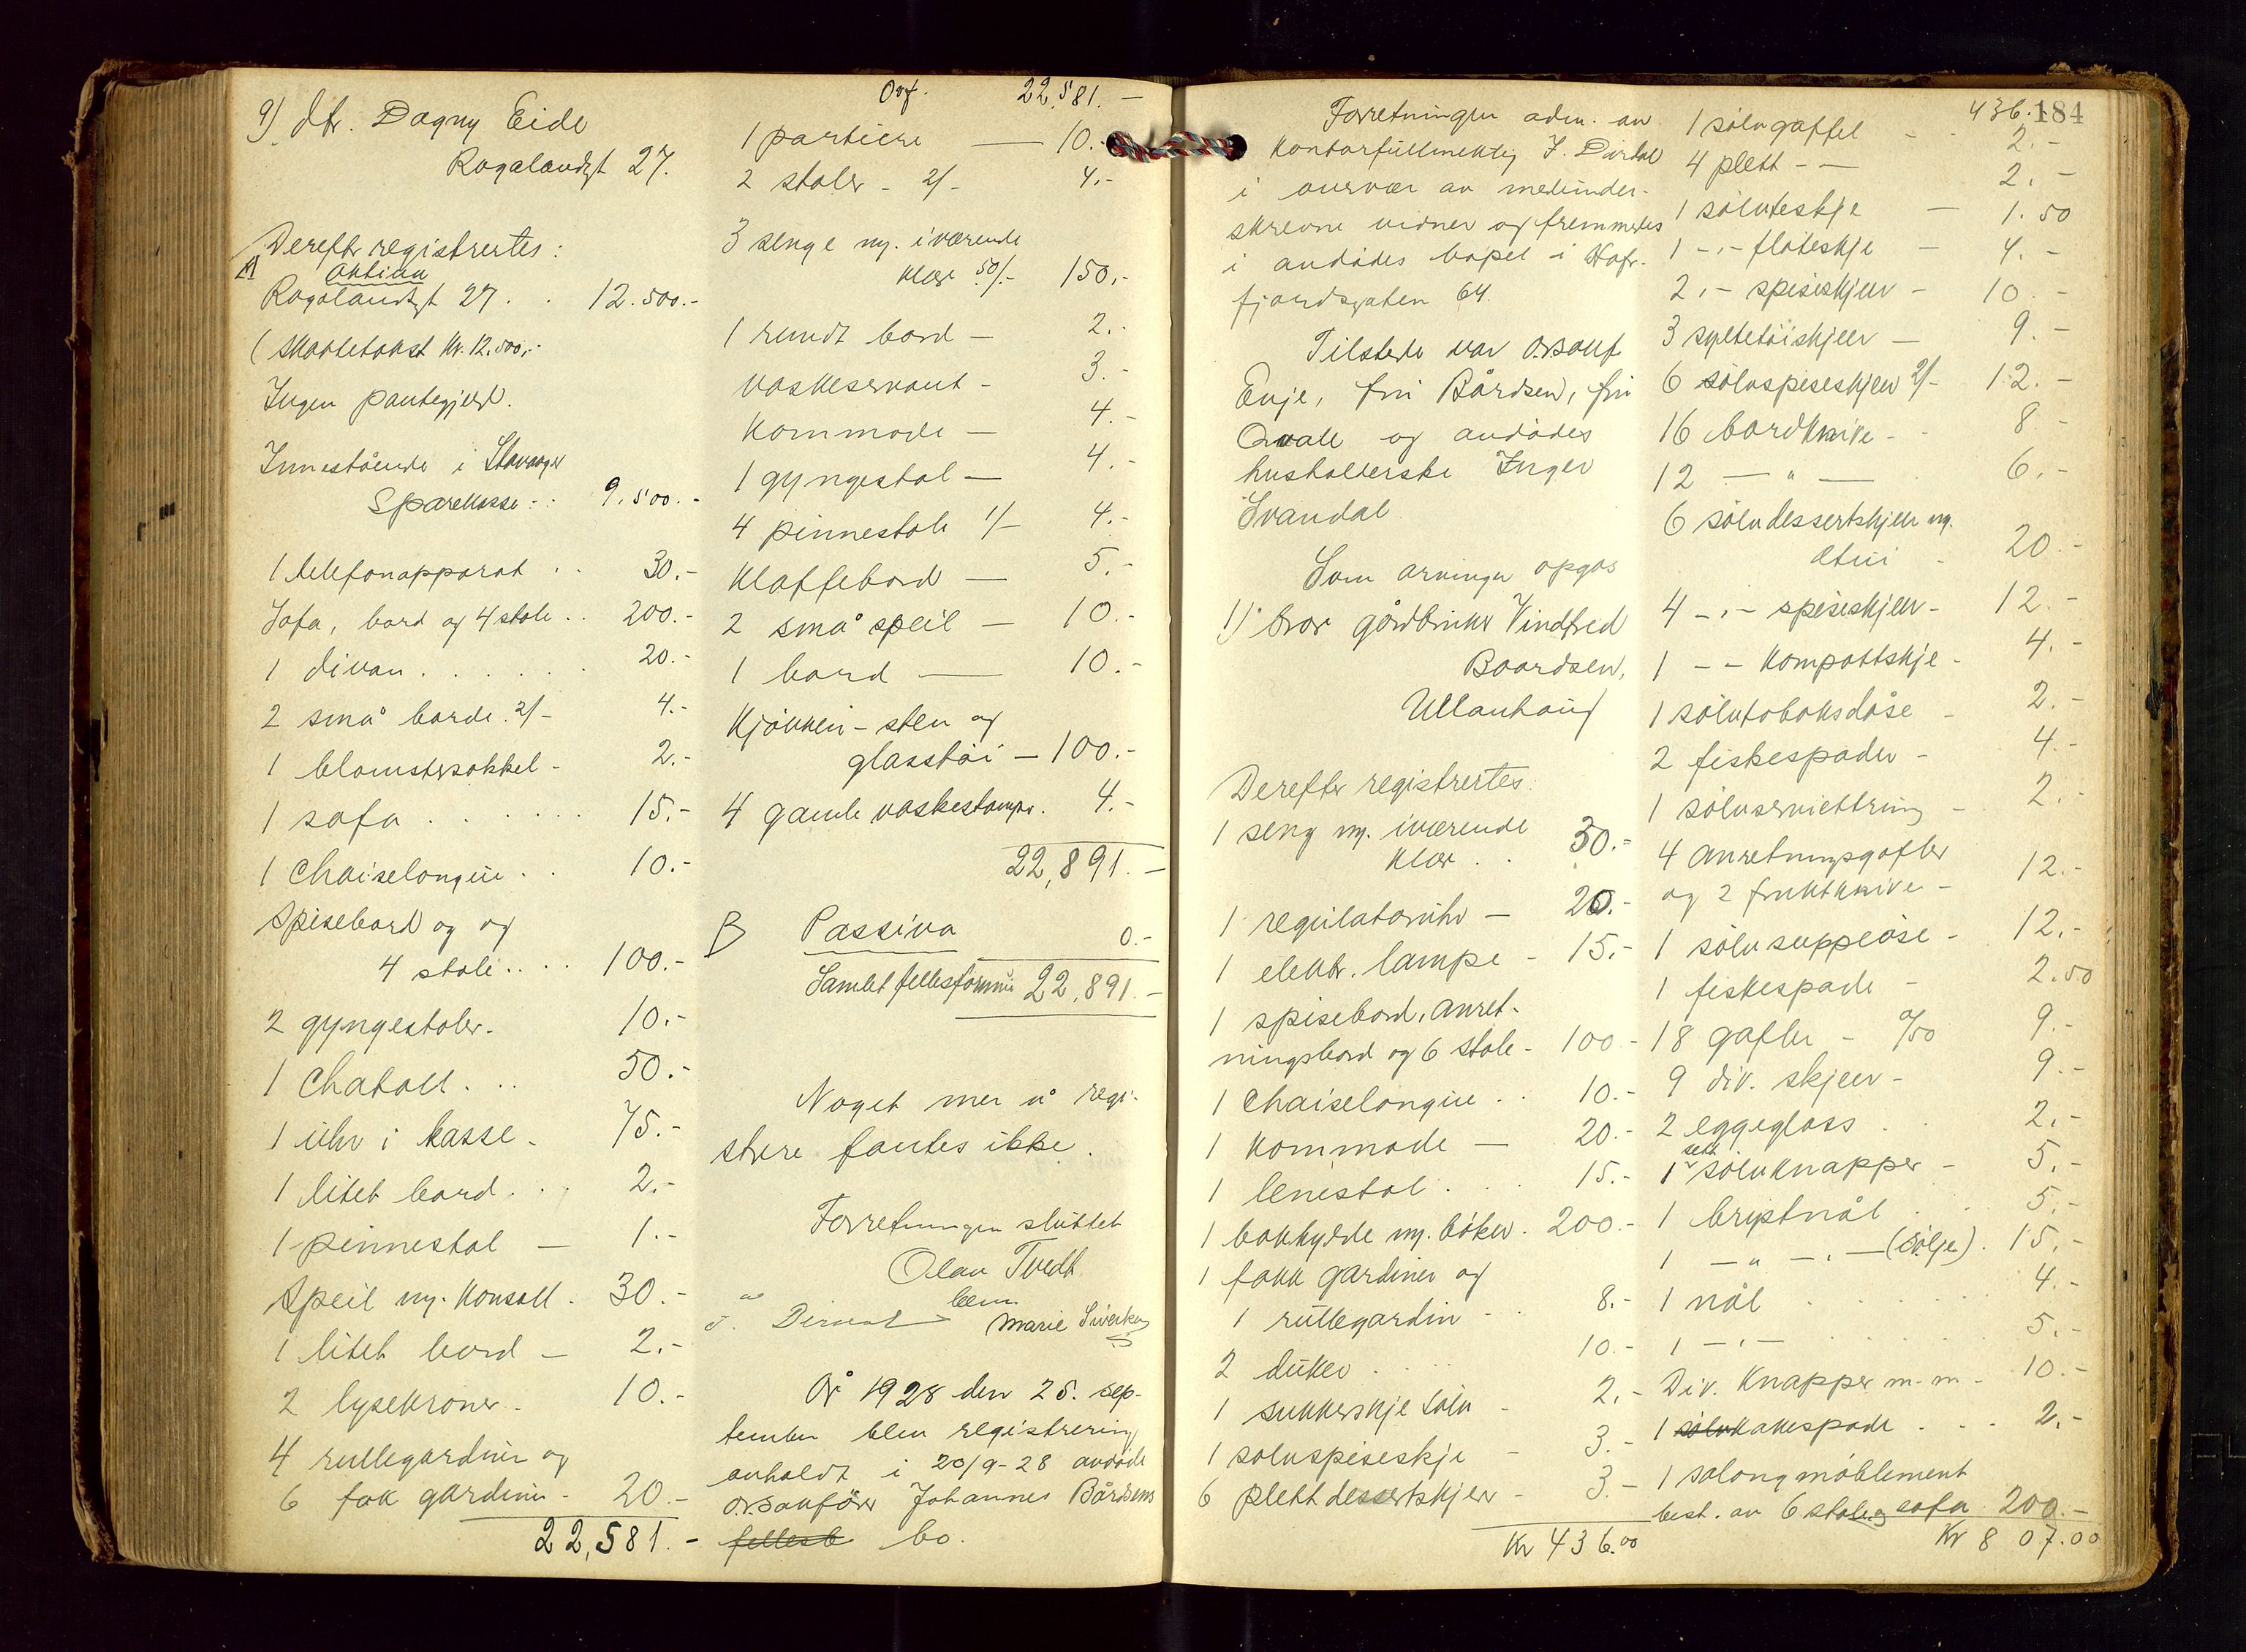 9) dtr. Dagny Eide
Rogalandsgt 27.
Derefter registrertes:
A
Aktiva
Rogalandsgt 27 . . 12.500.-
(Skattetakst kr. 12.500,-
Ingen pantegjeld.
Innestående i Stavanger
Sparekasse . . 9.500.-
1 telefonapparat . . 30.-
Sofa, bord og 4 stole . . 200.-
1 divan . . . . . 20.-
2 små borde 2/- 4.-
1 blomstersokkel - 2.-
1 sofa . . . . . . 15.-
1 Chaiselongue . . 10.-
Spisebord og og
4 stole . . . . 100.-
2 gyngestoler - 10.-
1 Chatoll . . . 50.-
1 uhr i kasse - 75.-
1 litet bord . . . 2.-
1 pinnestol — 1.-
Speil m. konsoll . 30.-
1 litet bord — 2.-
2 lysekroner - 10.-
4 rullegardiner og
6 fak gardiner - 20.-
22,581.-
Ovf. 22,581.-
1 portiere — 10.-
2 stoler - 2/- 4.-
3 senge m. iværende
klær 50/- 150.-
1 rundt bord — 2.-
Vaskeservant - 3.-
Kommode — 4.-
1 gyngestol — 4.-
4 pinnestole 1/- 4.-
Klaffebord — 5.-
2 små speil — 10.-
1 bord — 10.-
Kjøkken- sten og
glasstøi — 100.-
4 gamle vaskestamper . 4.-
22,891.-
B Passiva 0.-
Samlet fellesformue 22,891.-
Noget mer å regi-
strere fantes ikke.
Forretningen sluttet
Olav Tvedt
Marie Siverksen
År 1928 den 25. sep-
tember blev registrering
avholdt i 20/9-28 avdøde
o.r.sakfører Johannes Bårdsens
felles bo.
Forretningen adm. av
kontorfullmektig J. Dirdal
i overvær av medunder-
skrevne vidner og fremmedes
i avdødes bopel i Hafrs-
fjordsgaten 64.
Tilstede var o.r.sakf.
Enje, fru Bårdsen, fru
Qvale og avdødes
husholderske Inger
Svandal
Som arvinger opgas
1) bror gårdbruker Vindfred
Baardsen,
Ullenhaug
Derefter registrertes:
1 seng m. iværende
klær . . 30.-
1 regulatoruhr — 20.-
1 elektr. lampe - 15.-
1 spisebord, anret-
ningsbord og 6 stole - 100 -
1 Chaiselongue . . 10.-
1 Kommode — 20.-
1 lenestol . . . 15.-
1 bokhylde m. bøker . 200.-
1 fakk gardiner og
1 rullegardin - . 8.-
2 duker . . . . 10.-
1 sukkerskje sølv - 2.-
1 sølvspiseskje - 3.-
6 plett dessertskjeer - 3.-
Kr 436.00
184
436.-
1 sølvgaffel - . 2.-
4 plett - — 2.-
1 sølvteskje — 1.50
1 -,- fløteskje — 4.-
2 ,- spiseskjeer - 10.-
3 syltetøiskjeer — 9.-
6 sølvspiseskjeer 2/- 12.-
16 bordknive - . 8.-
12 — " — 6.-
6 sølvdessertskjeer m.
etui . 20.-
4 -,- spiseskjeer - 12.-
1 - - Kompottskje - 4.-
1 sølvtobaksdåse - 2.-
2 fiskespader - 4.-
1 sølvserviettring - 2.-
4 anretningsgafler
og 2 fruktknive - 12.-
1 sølvsuppeøse - 12.-
1 fiskespade - 2.50
18 gafler - 0/50 9.-
9 div. skjeer - 9.-
2 eggeglass . . 2.-
1 sett sølvknapper - 5.-
1 brystnål . . 5.-
1 — " — . — (Sølje) . 15.-
1 nål . . . . . . 4.-
1 - , - . . . . . 5.-
Div. Knapper m.m - 10.-
1 sølvkakespade . . . 2.-
1 salongmøblement
best. av 6 stole og sofa 200.-
Kr 807.00